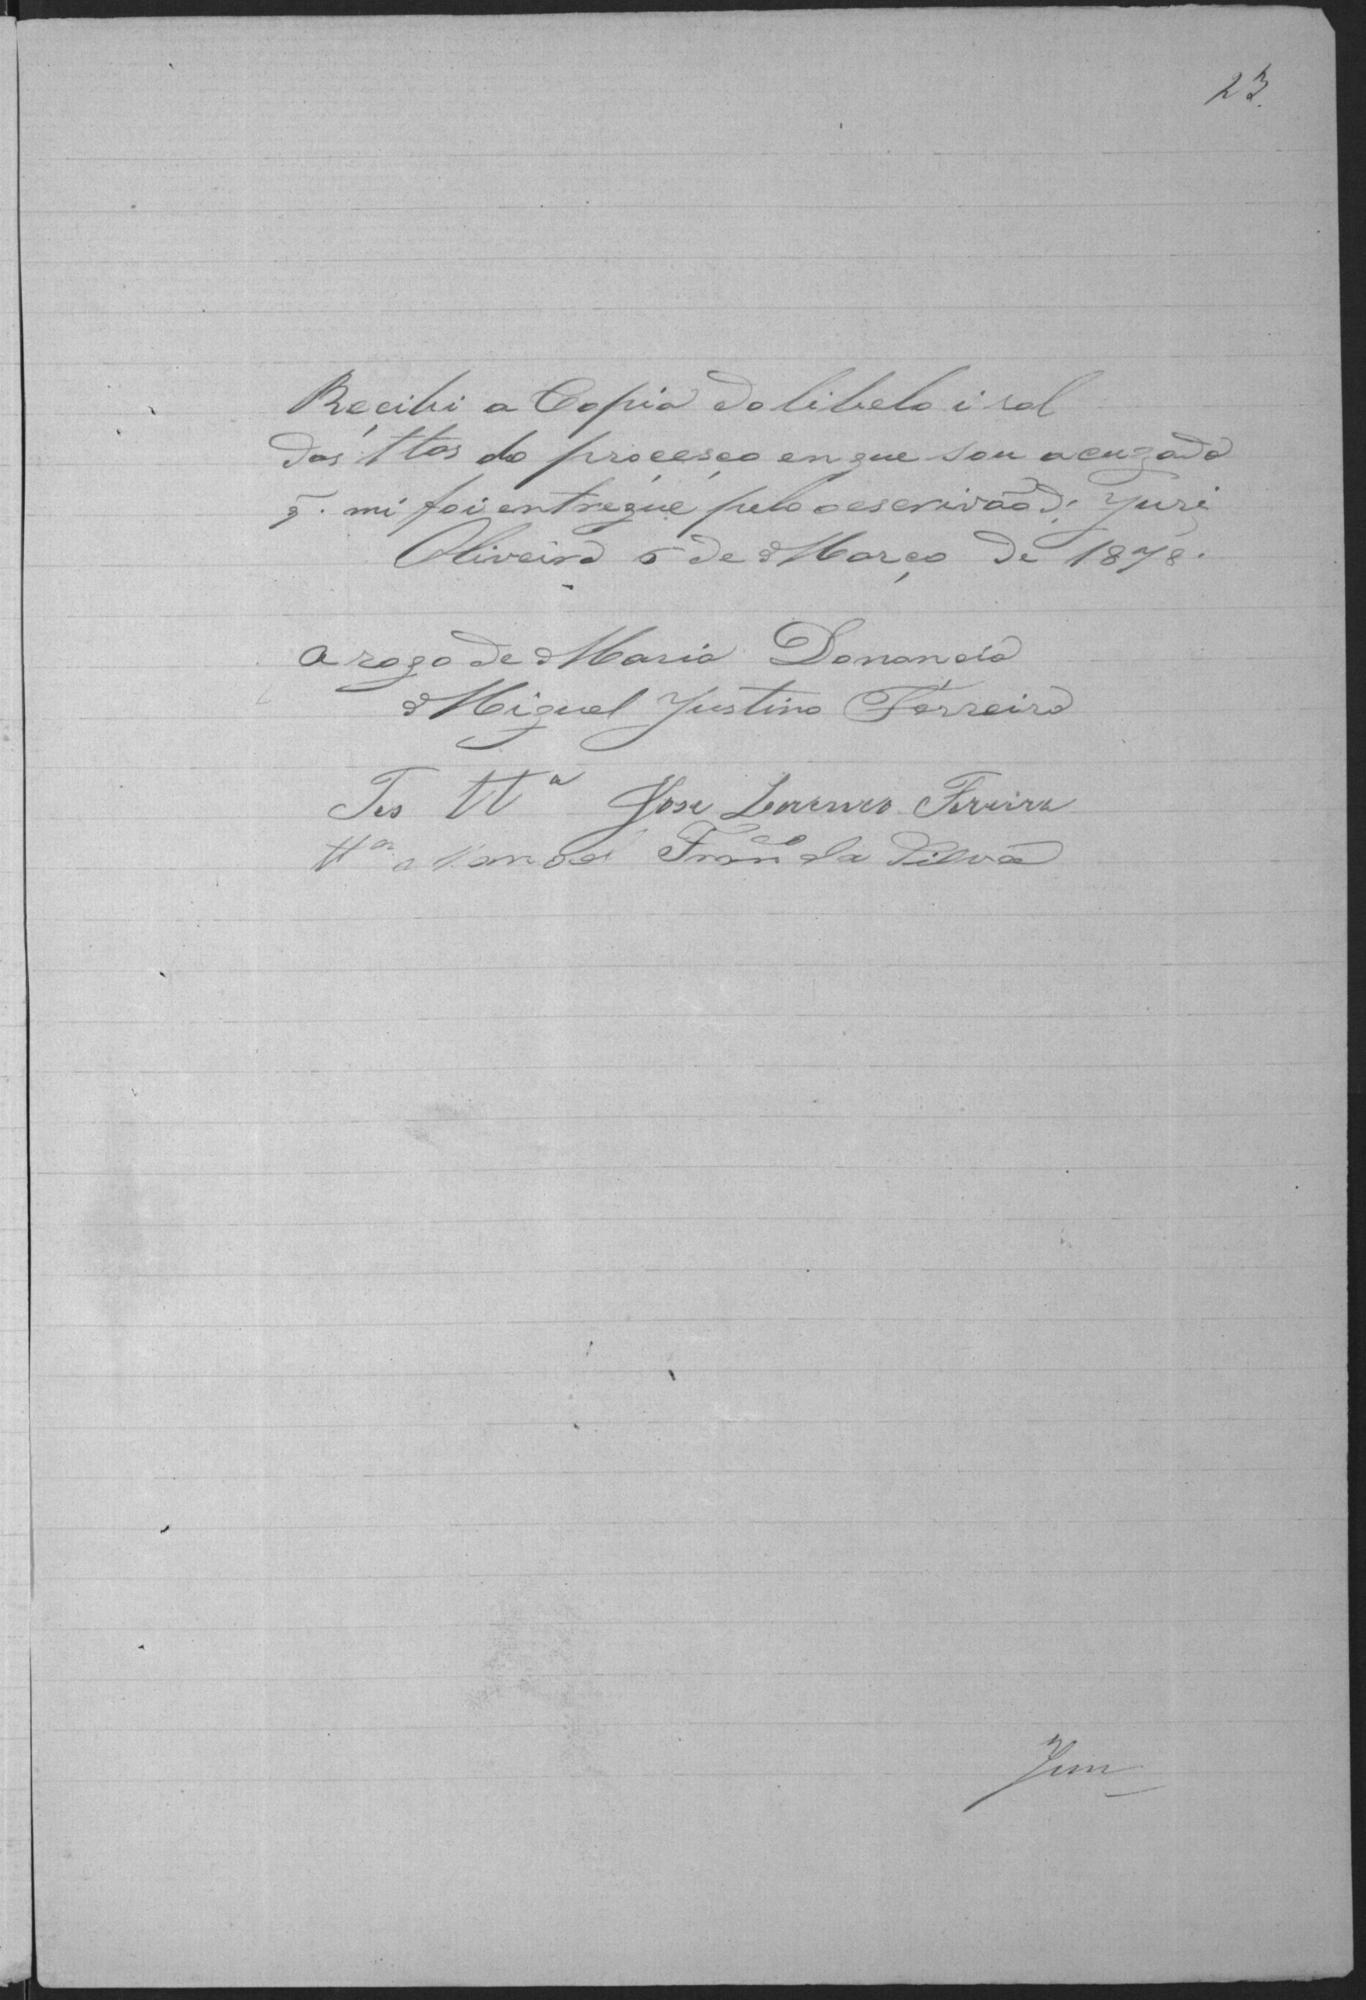 23.
Recibi a Copia do libelo i rol
das ttas do proceço en que sou acuzada
q̃. mi foi entregue pelo oescrivão d. Juri
Oliveira 5 de Março de 1878.
A rogo de Maria Donancia
Miguel Justino Ferreira
Tes ttª Jose Lorenco Fereira
ttª Manoel Franco da Silva